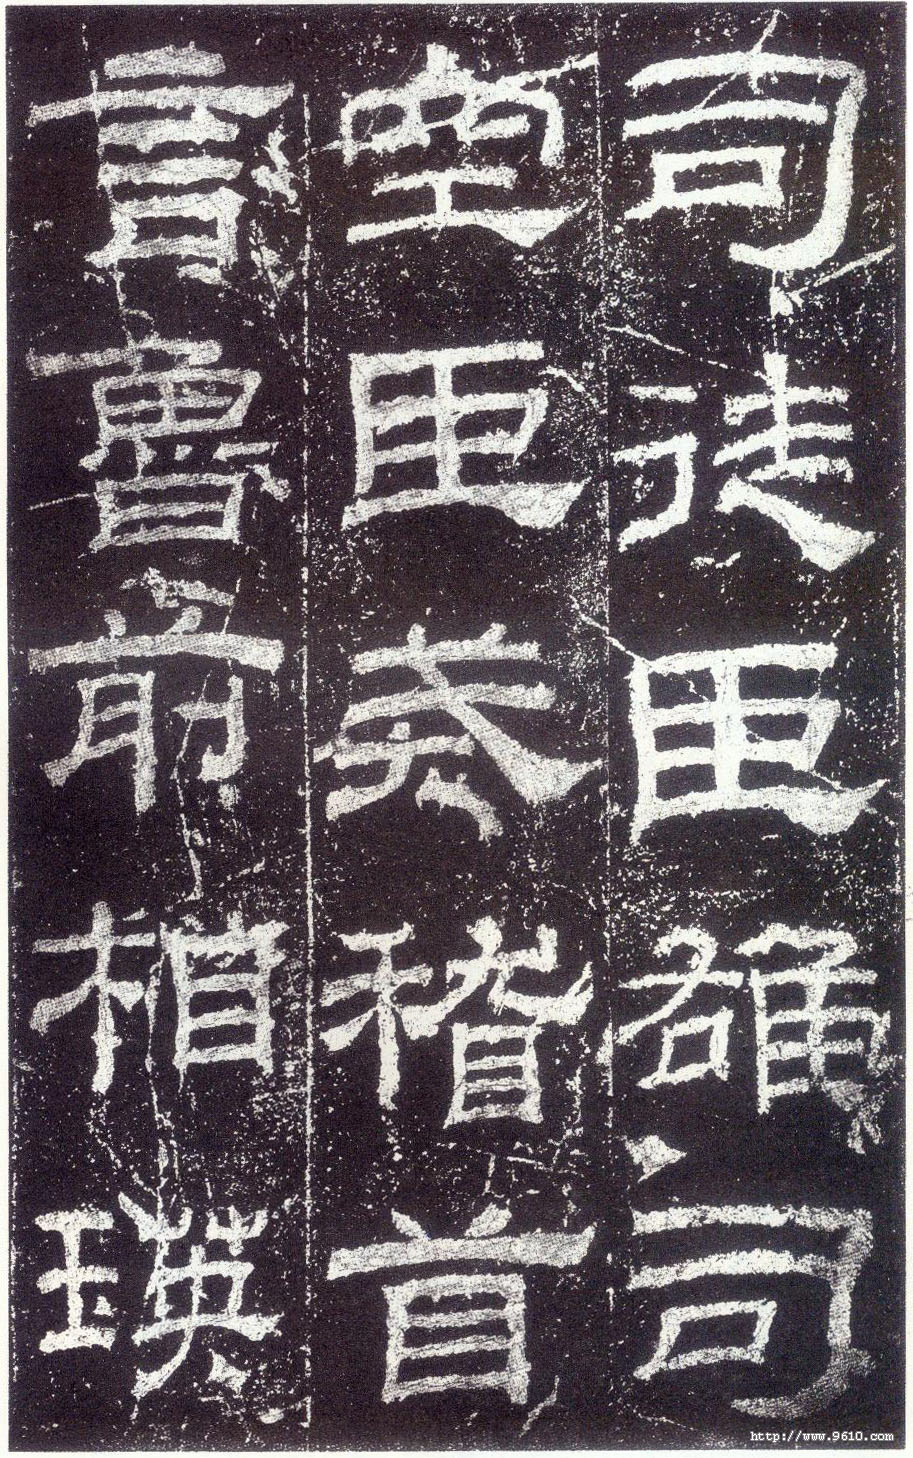 司徒臣雄司
空臣戒稽首
言魯前相瑛
http://www.9610.com